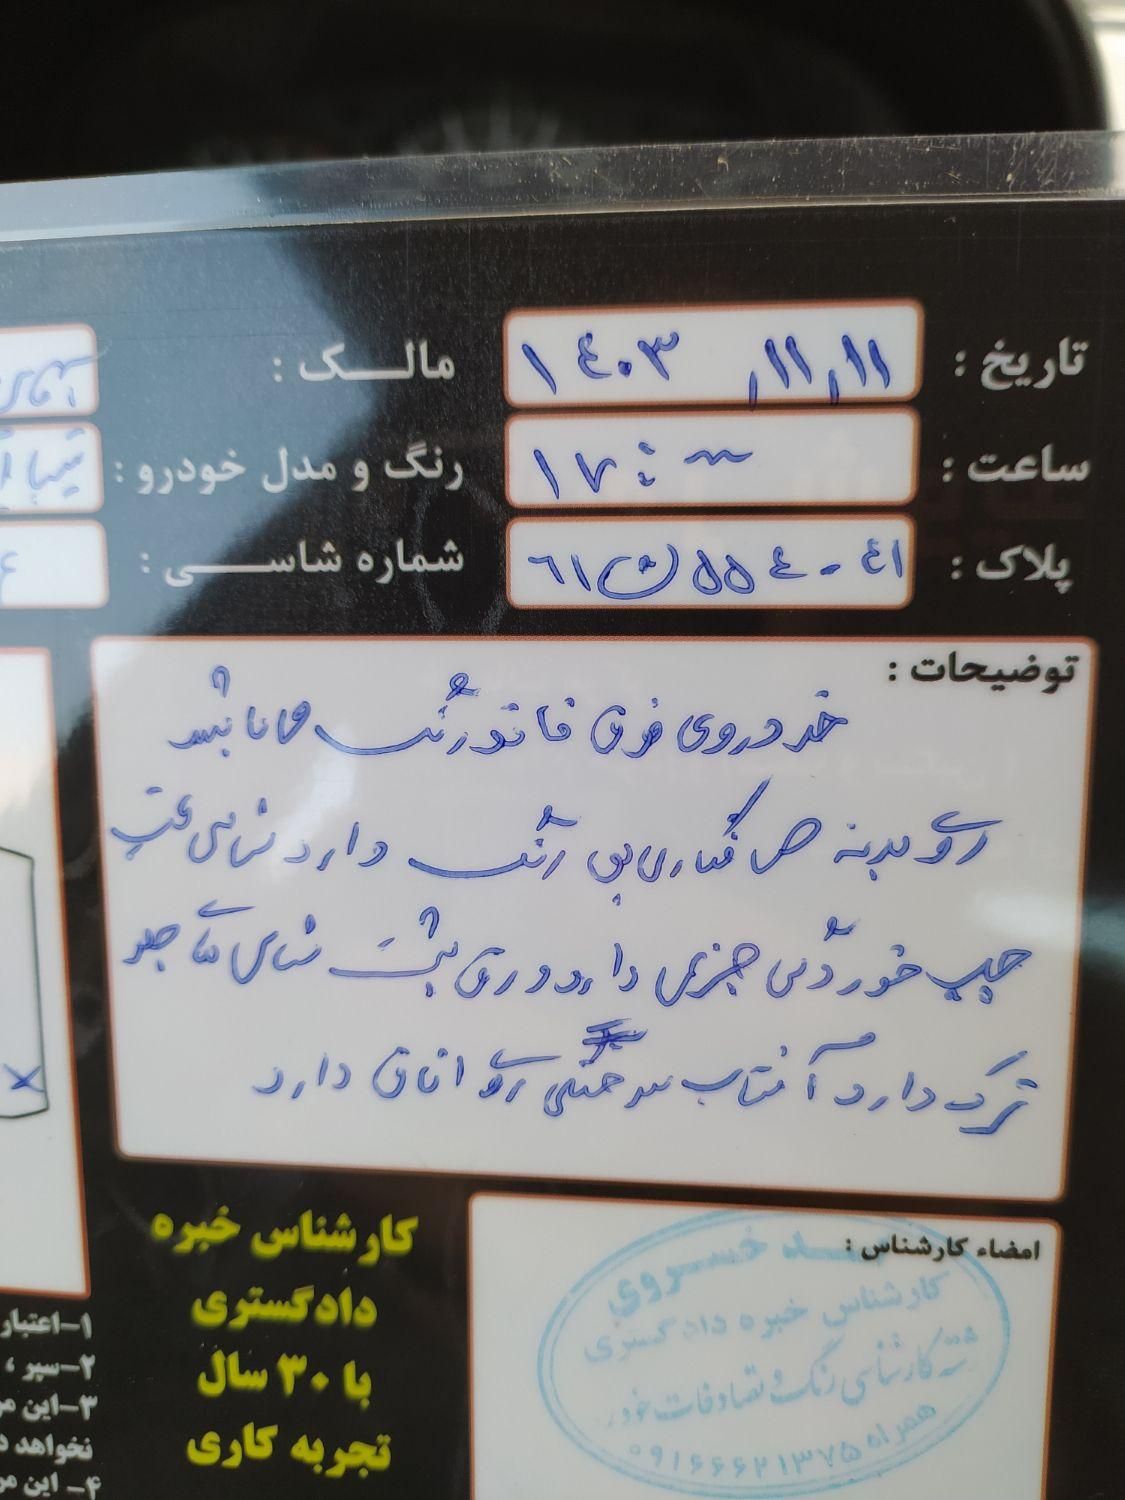 تاریخ : ۱۴۰۳,۱۱,۱۱
مالک :
ساعت : ۱۷:۳۰
رنگ و مدل خودرو : تیبا
پلاک : ۶۱ ص ۵۵۴-۴۱
شماره شاسی :
توضیحات :
خودروی فوق فاقد رنگ می باشد
روی بدنه صافکاری بی رنگ دارد شاسی عقب
چپ خوردگی جزیی دارد ورق پشت شاسی های جلو
ترک دارد آفتاب سوختگی روی اتاق دارد
کارشناس خبره
دادگستری
با ۳۰ سال
تجربه کاری
امضاء کارشناس :
خسروی
کارشناس خبره دادگستری
کارشناسی رنگ و تصادفات خودر
همراه ۰۹۱۶۶۶۲۱۳۷۵
۱-اعتبار
۲-سپر ،
۳-این
نخواهد
۴- این